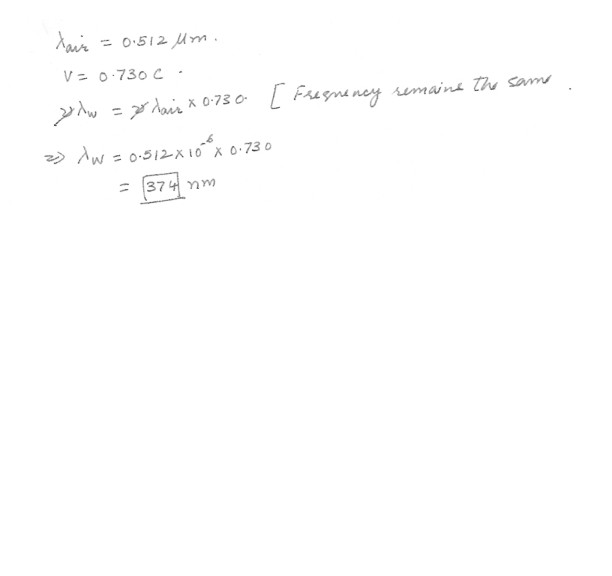 λair = 0.512 μm.
V = 0.730 C.
νλw = νλair × 0.730. [ Frequency remains the same.
⇒ λw = 0.512 × 10⁻⁶ × 0.730
= 374 nm